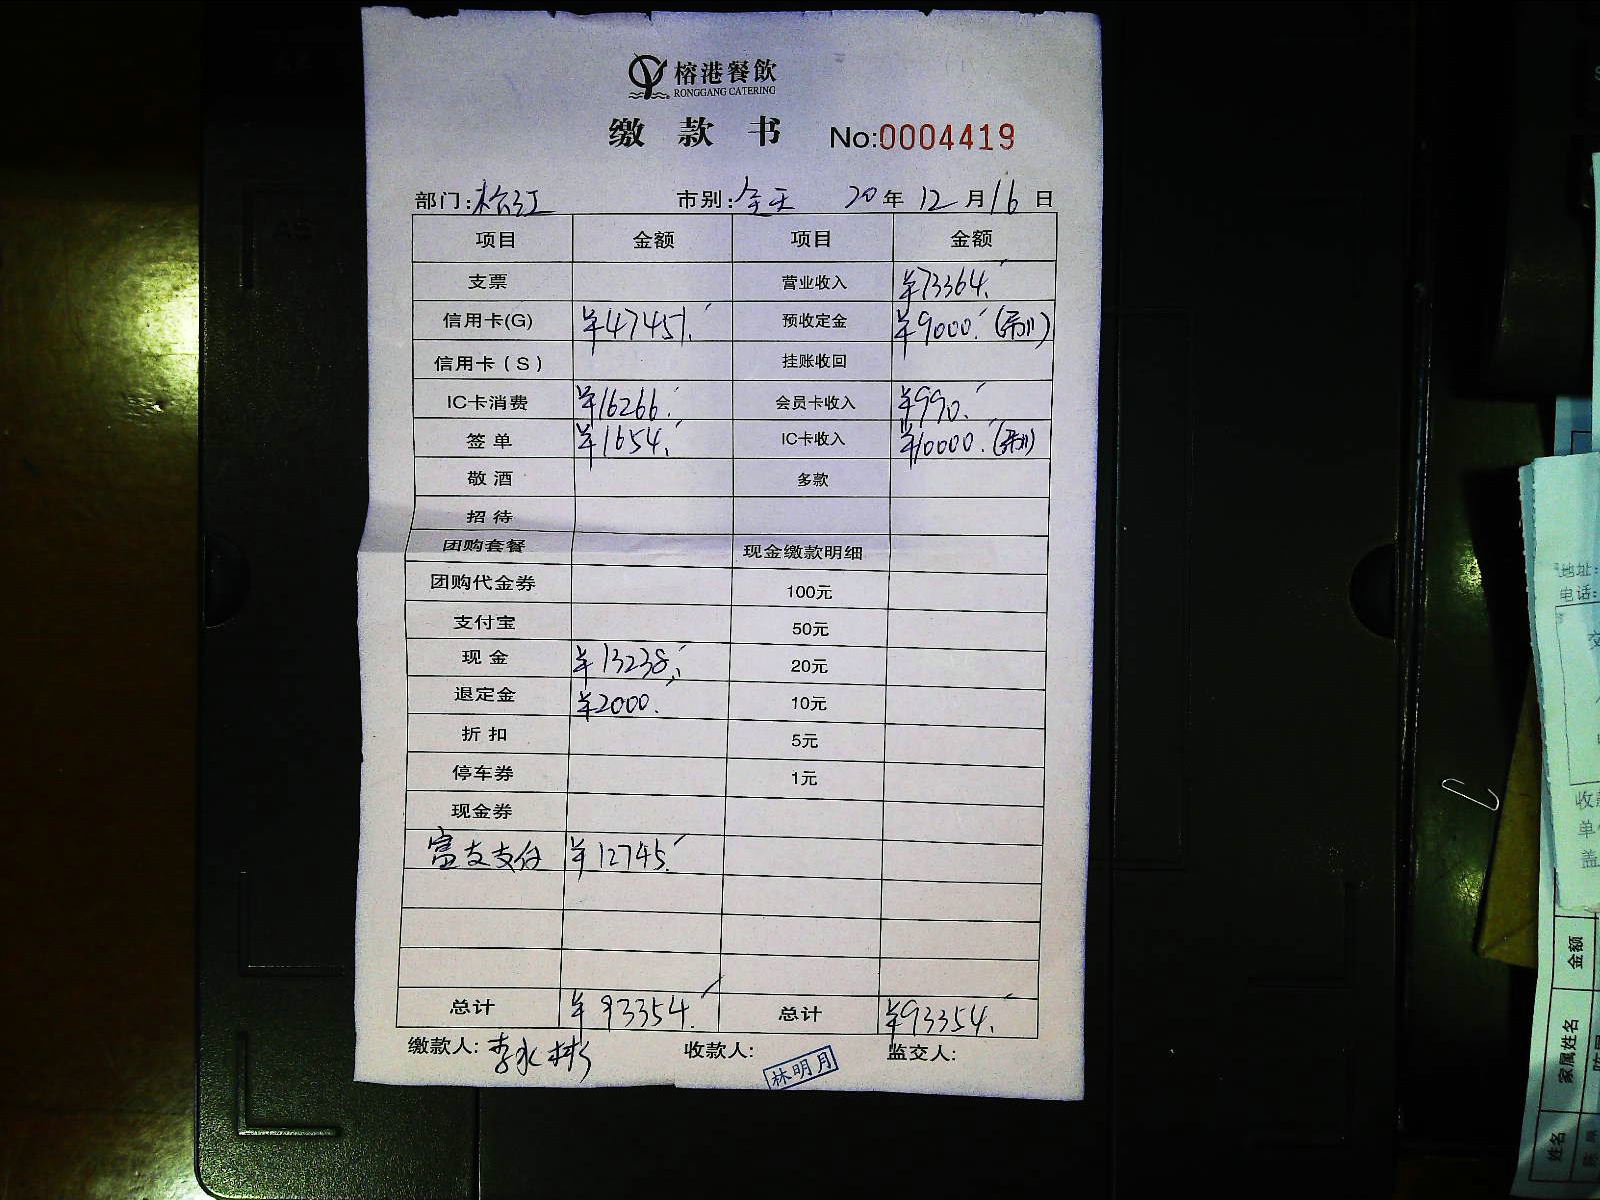 榕港餐飲
RONGGANG CATERING
缴款书 No:0004419
部门:松江 市别:全天 20年12月16日
项目 金额 项目 金额
支票 营业收入 ¥73364.
信用卡(G) ¥47451. 预收定金 ¥9000.
信用卡(S) 挂账收回
IC卡消费 ¥16266. 会员卡收入 ¥990.
签单 ¥1654. IC卡收入 ¥10000.
敬酒 多款
招待
团购套餐 现金缴款明细
团购代金券 100元
支付宝 50元
现金 ¥13238. 20元
退定金 ¥2000. 10元
折扣 5元
停车券 1元
现金券
富友支付 ¥12745.
总计 ¥93354. 总计 ¥93354.
缴款人:李水彬 收款人: 监交人:
林明月
地址:
电话:
金额
家属姓名
姓名